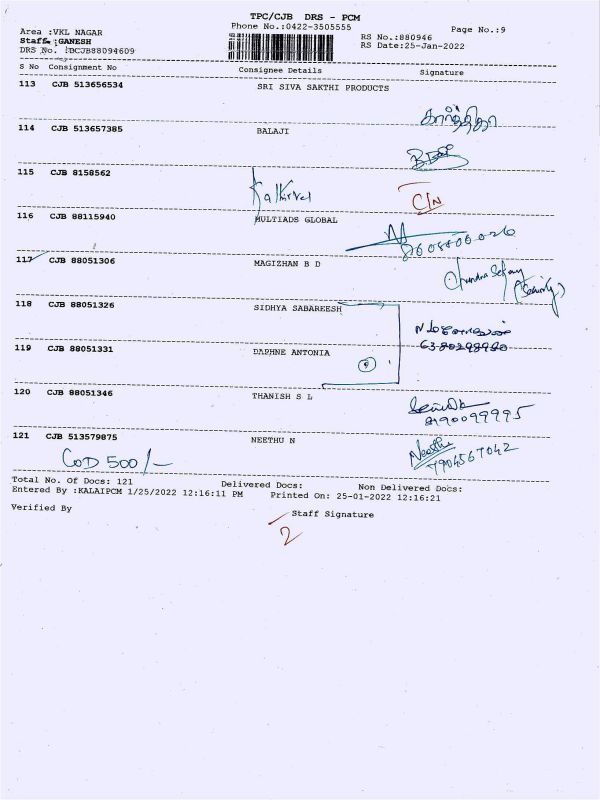 TPC/CJB DRS - PCM
Phone No.:0422-3505555
Page No.:9
Area :VKL NAGAR
Staff :GANESH
DRS No. :BCJB88094609
RS No.:880946
RS Date:25-Jan-2022
S No Consignment No Consignee Details Signature
113 CJB 513656534 SRI SIVA SAKTHI PRODUCTS
கார்த்திகா
114 CJB 513657385 BALAJI
115 CJB 8158562
Kathirvel C/N
116 CJB 88115940 MULTIADS GLOBAL
117 CJB 88051306 MAGIZHAN B D
Chandra Sekar
(Security)
118 CJB 88051326 SIDHYA SABAREESH
119 CJB 88051331 DAPHNE ANTONIA
120 CJB 88051346 THANISH S L
8190099995
121 CJB 513579875 NEETHU N
Neethu
7904567042
COD 500/-
Total No. Of Docs: 121 Delivered Docs: Non Delivered Docs:
Entered By :KALAIPCM 1/25/2022 12:16:11 PM Printed On: 25-01-2022 12:16:21
Verified By Staff Signature
2